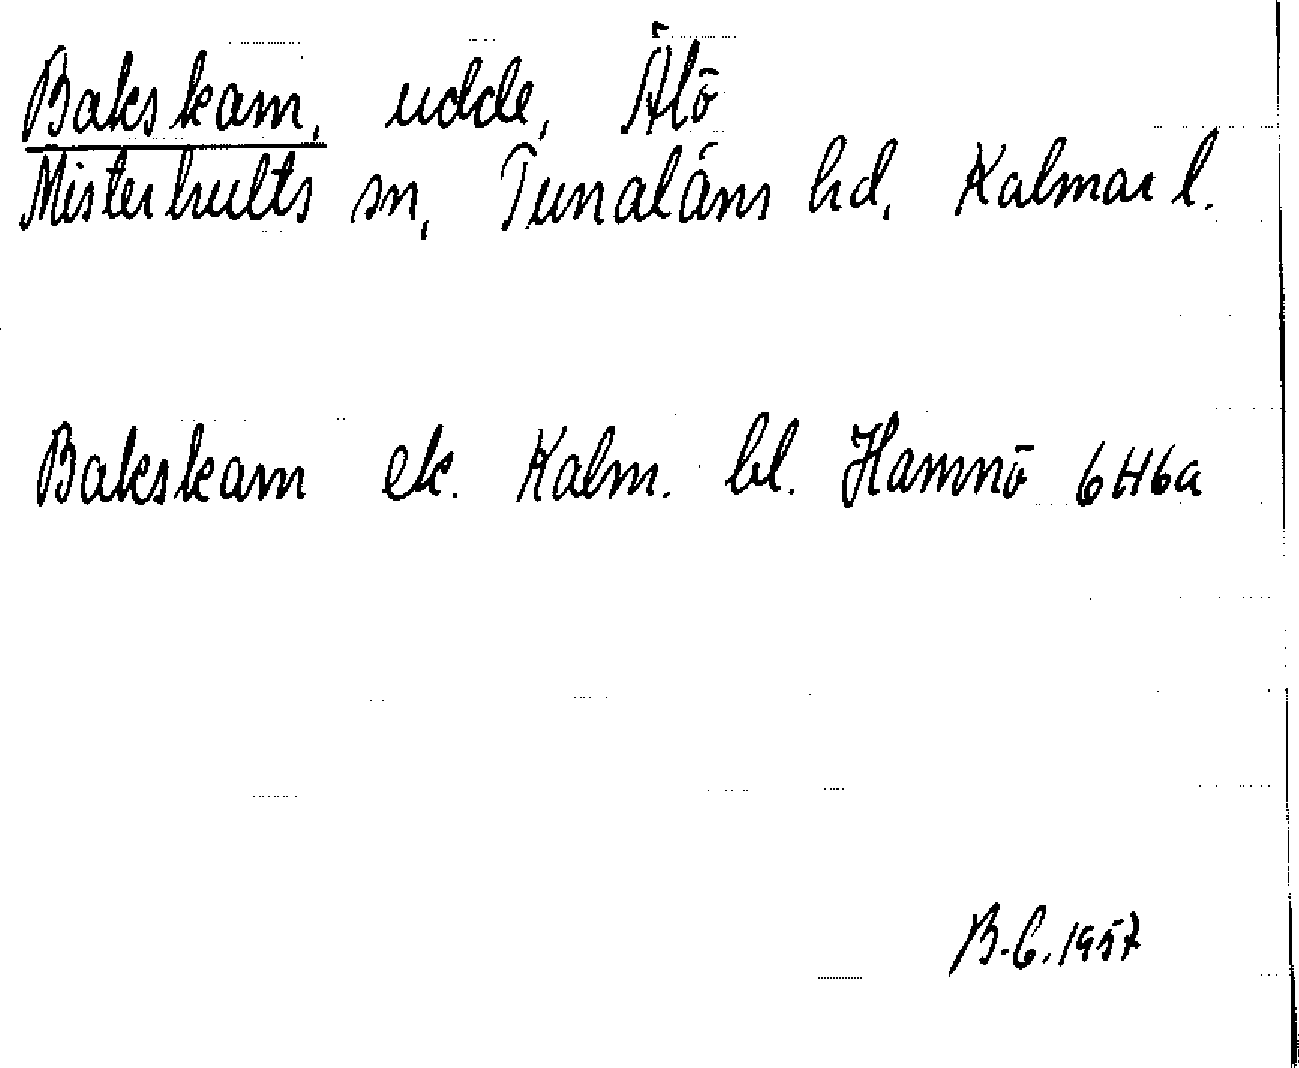 Bakskam, udde, Älö
Misterhults sn, Tunaläns hd, Kalmar l.
Bakskam ek. Kalm. bl. Hamnö 6H6a
B.C. 1957